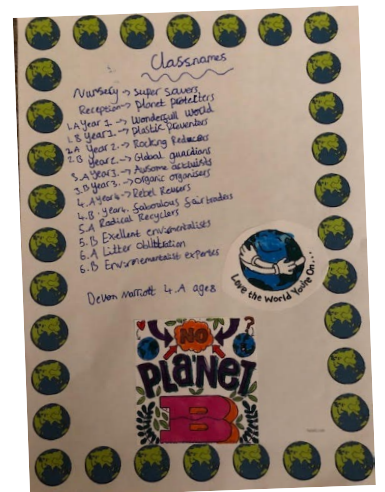 Classnames
Nursery → super savers
Reception → Planet protetters
1.A Year 1 → Wonderfull World
1.B Year 1. → Plastic Preventors
2.A Year 2 → Rocking Reducers
2.B Year 2. → Global guardians
3.A Year 3. → Awsome activists
3.B Year 3. → Organic organisers
4.A Year 4 → Rebel Reusers
4.B. Year 4. Faboulous fair traders
5.A Radical Recyclers
5.B Exellent envirmentalists
6.A Litter Oblitteration
6.B Envirnementalist experses
Devon Marriott 4.A age 8
Love the World You're On...
NO
?
PLANET
B